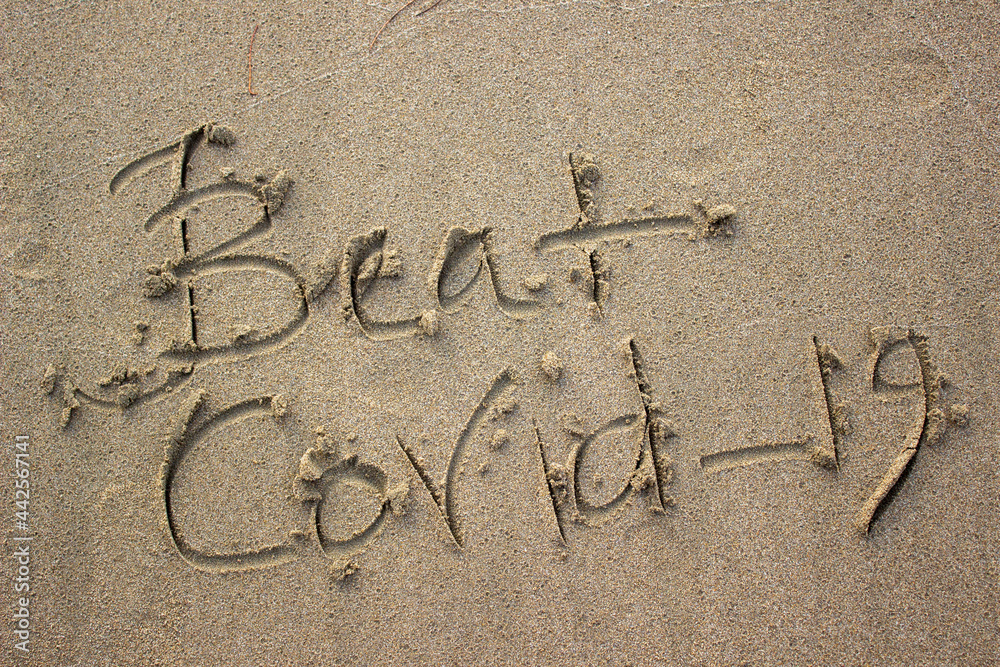 Beat
Covid-19
Adobe Stock | #442567141